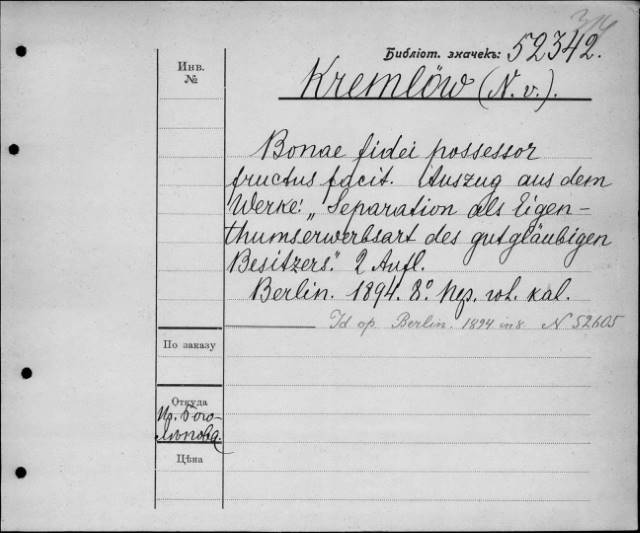 314
Библіот. значекъ: 52342.
Инв.
№
Kremlöw (N. v.).
Bonae fidei possessor
fructus facit. Auszug aus dem
Werke: „Separation als Eigen-
thumserwerbsart des gutgläubigen
Besitzers." 2 Aufl.
Berlin. 1894. 8º.
Id op. Berlin. 1894 in 8. N 52605
По заказу
Откуда
Цѣна